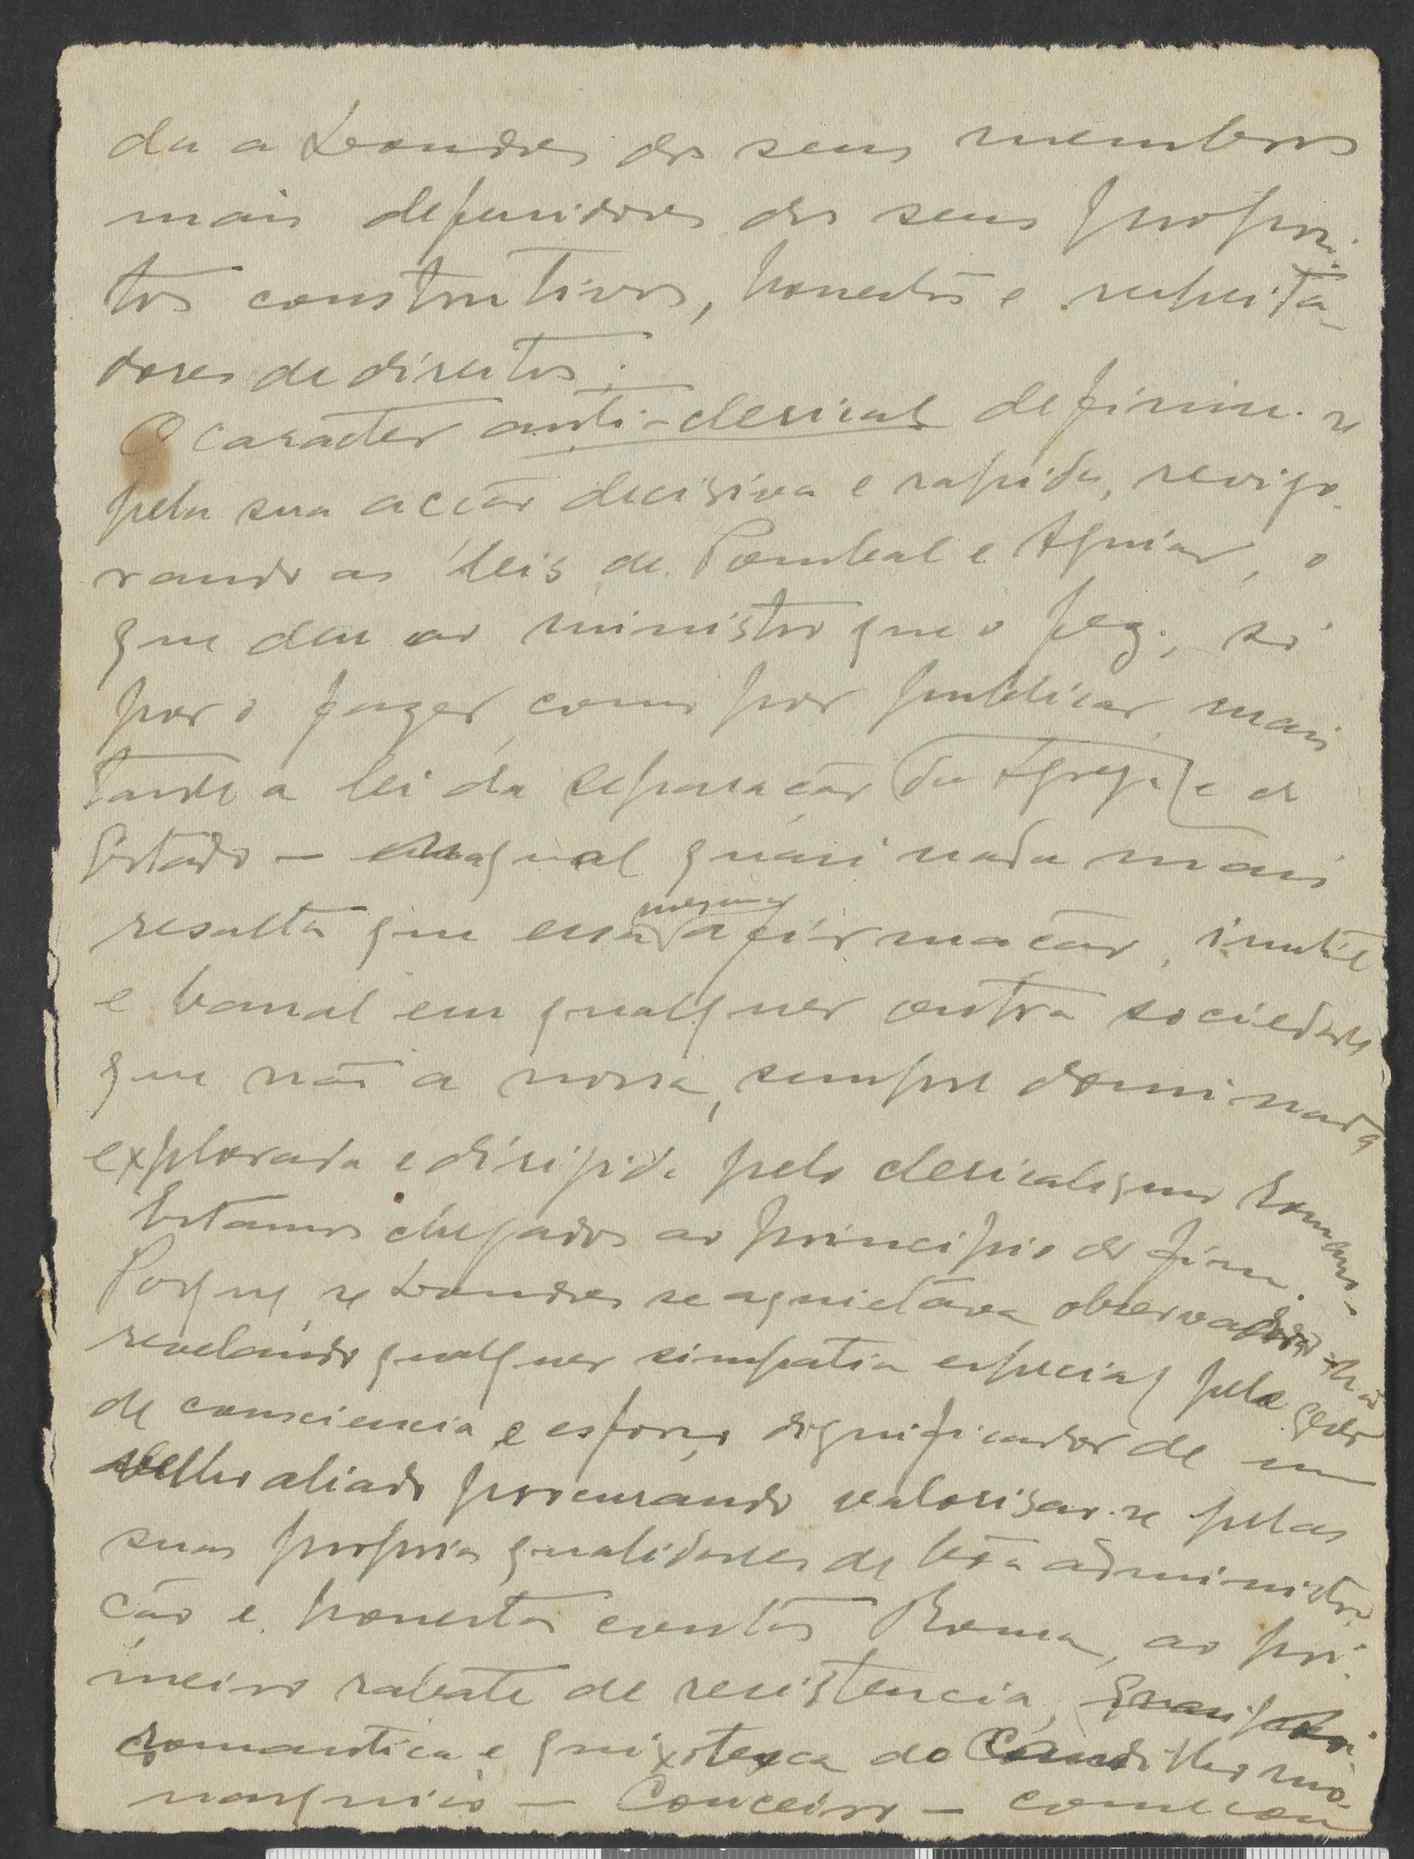 da a Londres dos seus membros
mais defenidores dos seus proposi-
tos construtivos, honestos e respeita-
dores de direitos.
O caracter anti-clerical definiu-se
pela sua acção decisiva e rapida, revigo-
rando as leis de Pombal e Aguiar, o
que deu ao ministro que o fez, só
por o fazer, como por publicar, mais
tarde a lei da separação da Igreja e do
Estado — na qual quási nada mais
resalta que essa mesma afirmação, inutil
e banal em qualquer outra sociedade
que não a nossa, sempre dominada
explorada e dirigida pelo clericalismo Romano.
Estamos chegados ao principio do fim.
Porque se Londres se aquietava observadora não
revelando qualquer simpatia especial pelo
de consciencia e esforço dignificador de um
velho aliado procurando valorisar-se pelas
suas proprias qualidades de bôa administra
ção e honestas contas Roma, ao pri-
meiro rebate de resistencia, quasi
romantica e quixotesca do Caudilho mo-
narquico — Conceiro — comecou